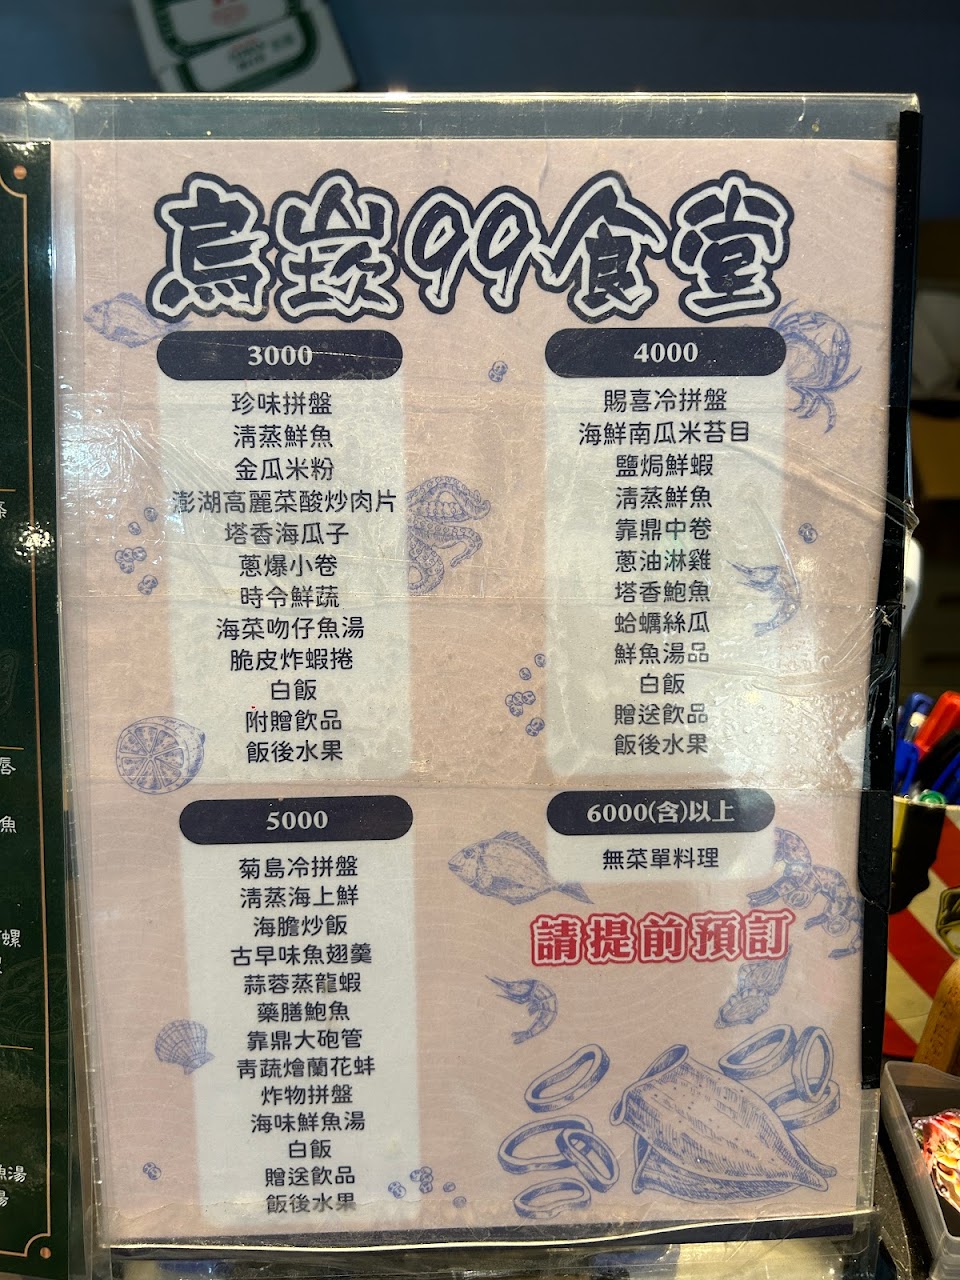 烏崁99食堂
3000
珍味拼盤
清蒸鮮魚
金瓜米粉
澎湖高麗菜酸炒肉片
塔香海瓜子
蔥爆小卷
時令鮮蔬
海菜吻仔魚湯
脆皮炸蝦捲
白飯
附贈飲品
飯後水果
4000
賜喜冷拼盤
海鮮南瓜米苔目
鹽焗鮮蝦
清蒸鮮魚
靠鼎中卷
蔥油淋雞
塔香鮑魚
蛤蠣絲瓜
鮮魚湯品
白飯
贈送飲品
飯後水果
5000
菊島冷拼盤
清蒸海上鮮
海膽炒飯
古早味魚翅羹
蒜蓉蒸龍蝦
藥膳鮑魚
靠鼎大砲管
青蔬燴蘭花蚌
炸物拼盤
海味鮮魚湯
白飯
贈送飲品
飯後水果
6000(含)以上
無菜單料理
請提前預訂
魚
螺
湯